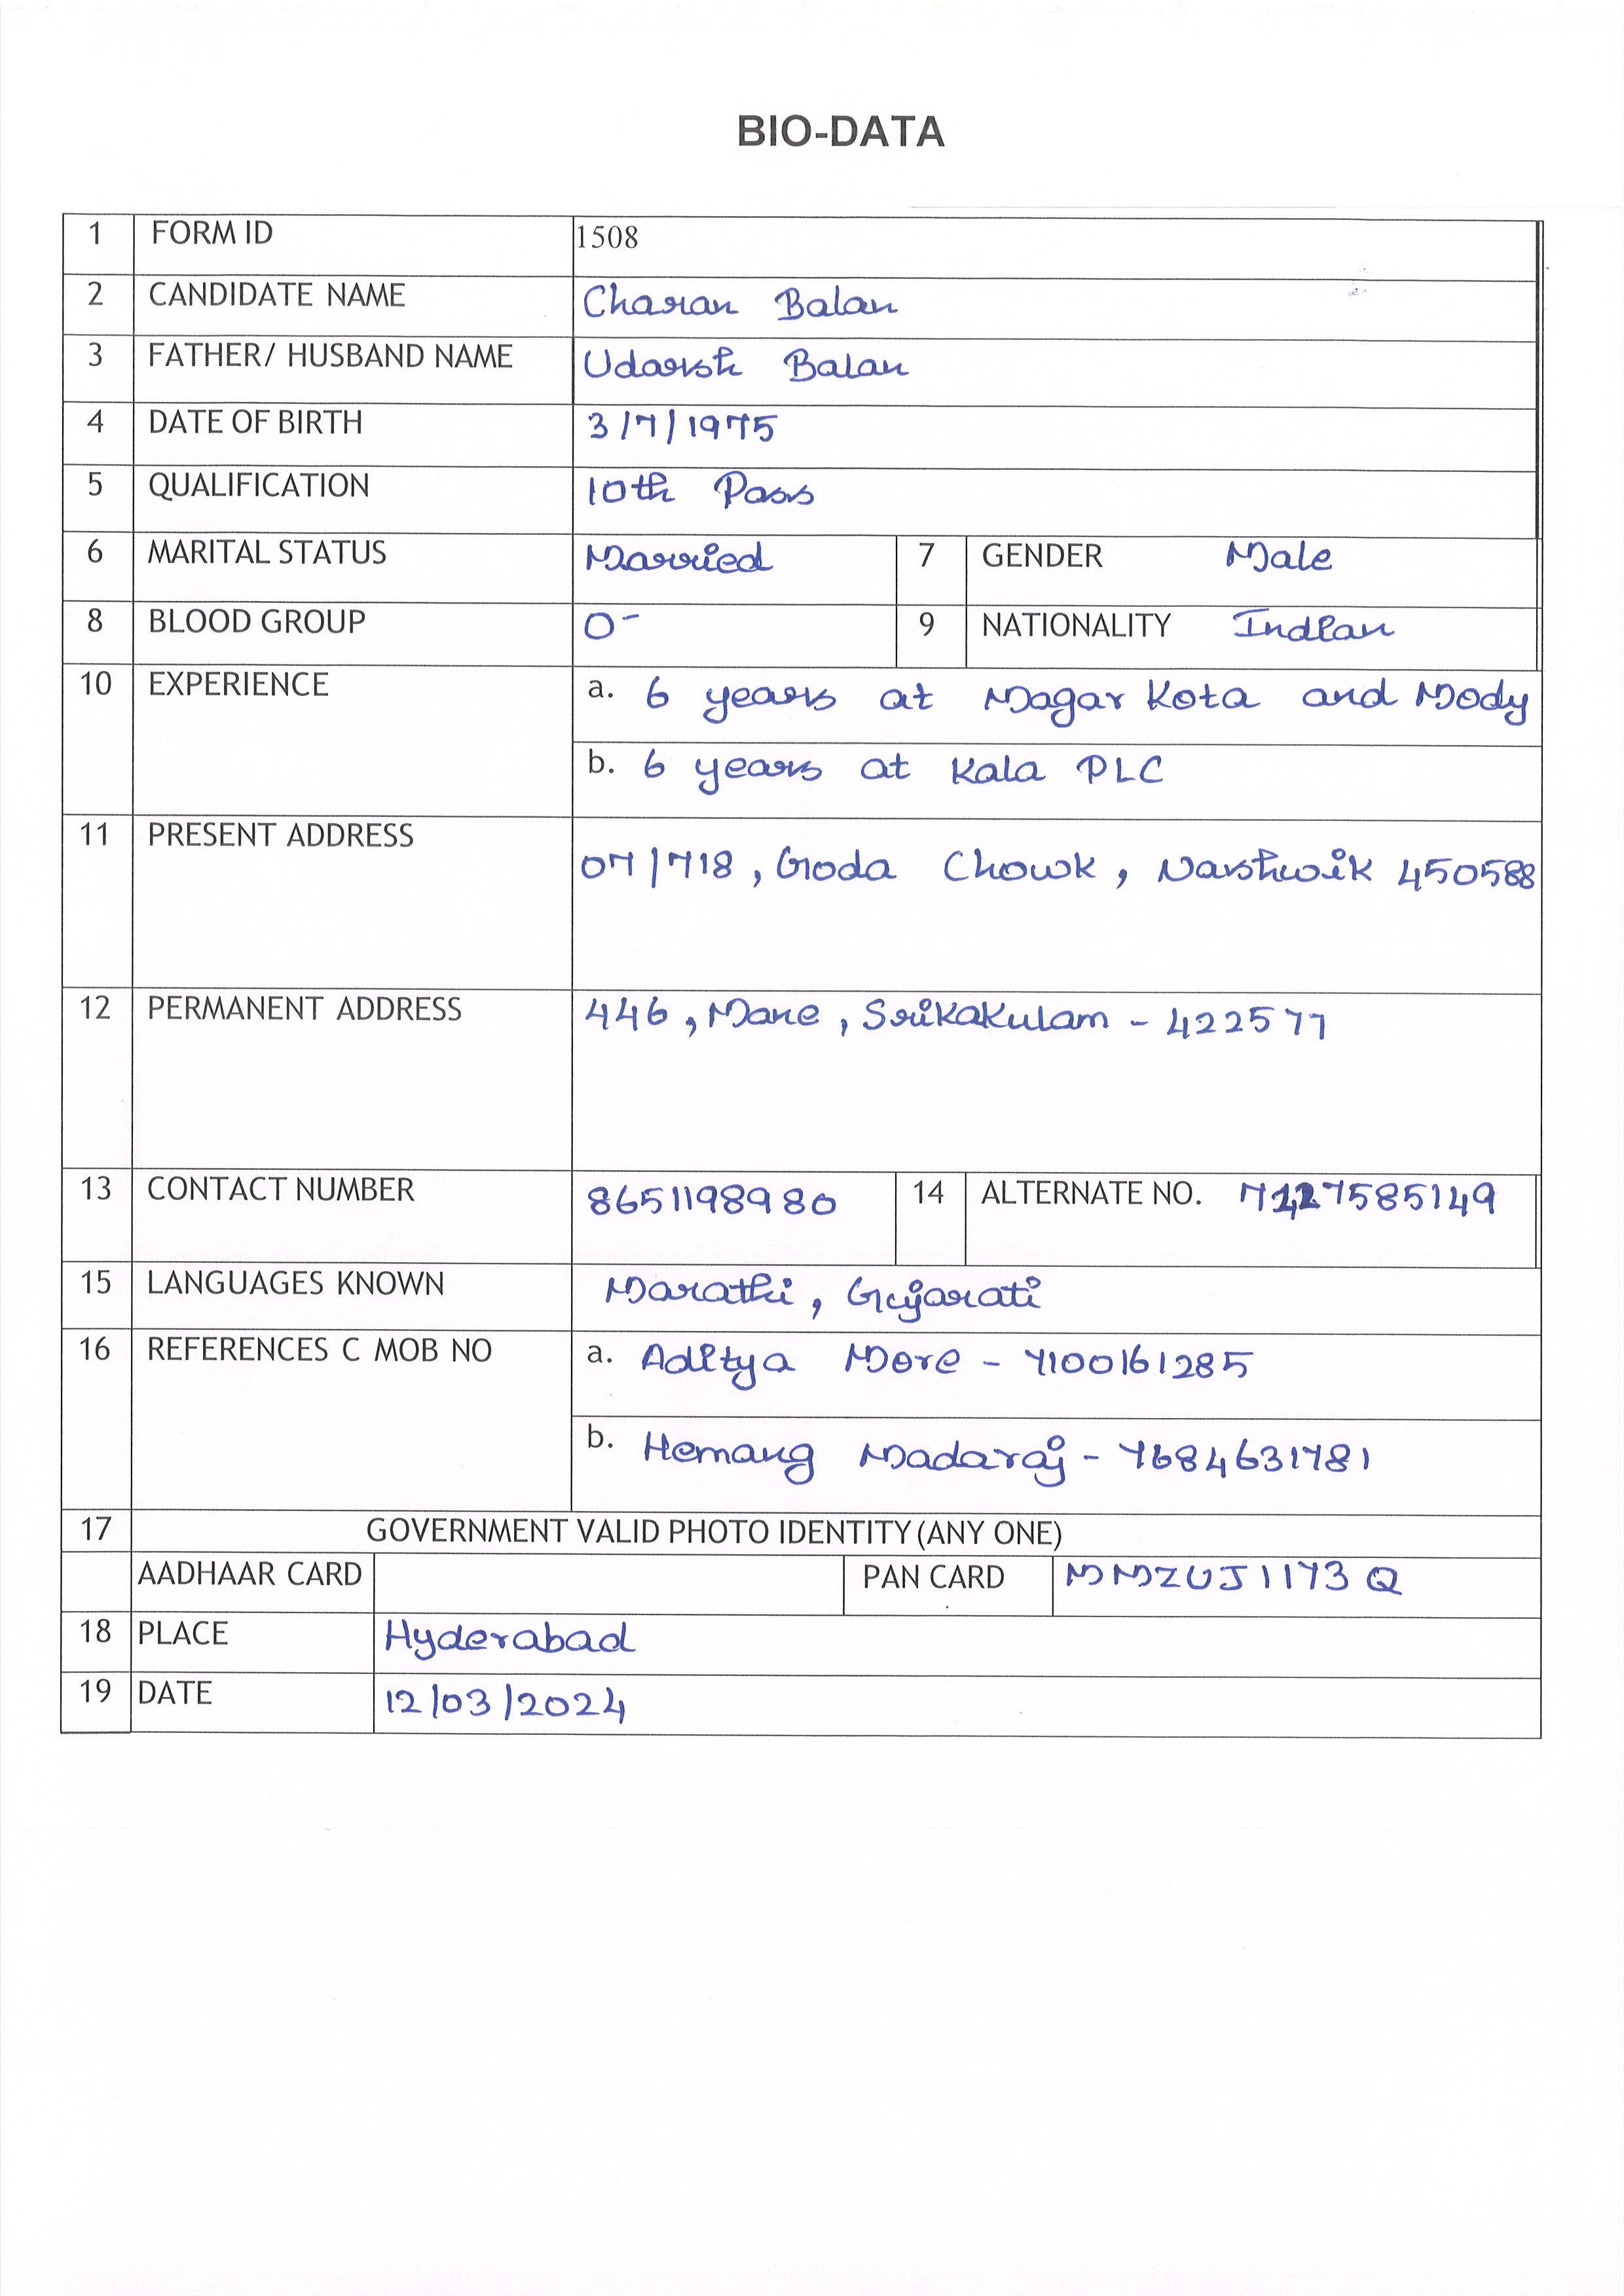 BIO-DATA
1 FORM ID 1508
2 CANDIDATE NAME Charan Balan
3 FATHER/ HUSBAND NAME Udarsh Balan
4 DATE OF BIRTH 3/7/1975
5 QUALIFICATION 10th Pass
6 MARITAL STATUS Married 7 GENDER Male
8 BLOOD GROUP O- 9 NATIONALITY Indian
10 EXPERIENCE a. 6 years at Magar Kota and Mody
b. 6 years at Kala PLC
11 PRESENT ADDRESS
07/718, Goda Chowk, Narshwik 450588
12 PERMANENT ADDRESS 446, Mane, Srikakulam - 422577
13 CONTACT NUMBER 8651198980 14 ALTERNATE NO. 7127585149
15 LANGUAGES KNOWN Marathi, Gujarati
16 REFERENCES C MOB NO a. Aditya More - 7100161285
b. Hemang Madaraj - 7684631781
17 GOVERNMENT VALID PHOTO IDENTITY (ANY ONE)
AADHAAR CARD PAN CARD MMZUJ1173Q
18 PLACE Hyderabad
19 DATE 12/03/2024